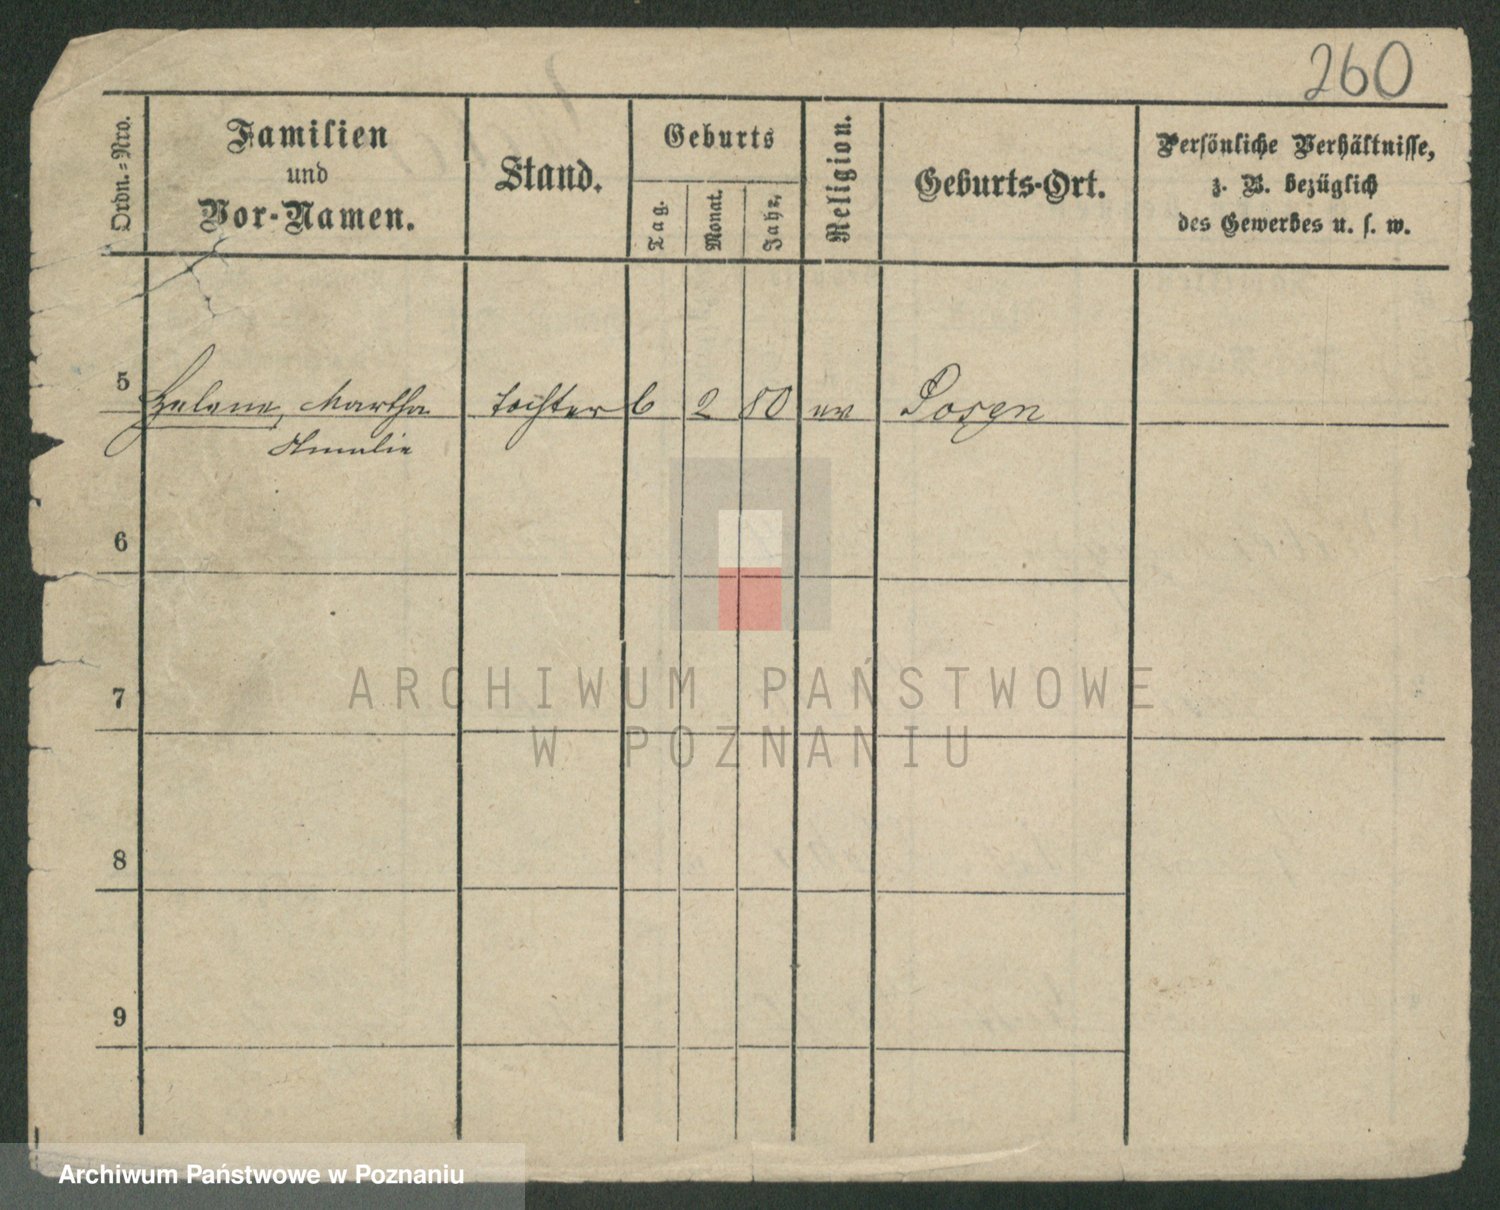 260
Ordn.-Nro.
Familien
und
Vor-Namen.
Stand.
Geburts
Tag.
Monat.
Jahr.
Religion.
Geburts-Ort.
Persönliche Verhältnisse,
z. B. bezüglich
des Gewerbes u. s. w.
5 Helene, Martha Tochter 6 2 80 ev Posen
Amalie
6
7
8
9
ARCHIWUM PAŃSTWOWE
W POZNANIU
Archiwum Państwowe w Poznaniu